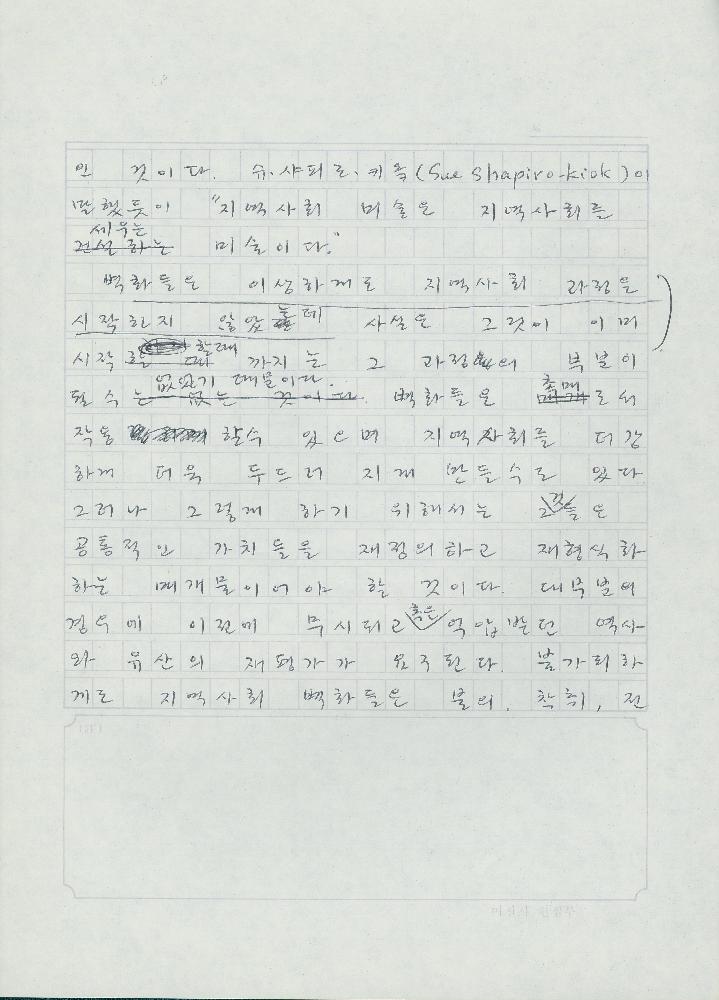 인 것이다. 슈.샤피로.키옥(Sue Shapiro-kiok)이
말했듯이 "지역사회 미술은 지역사회를
세우는
건설하는 미술이다."
벽화들은 이상하게도 지역사회 과정을
시작하지 않았는데 사실은 그것이 이미
시작할 할때 까지는 그 과정의 부분이
없었기 때문이다.
필수는 없는 것이다. 벽화들은 촉매로서
작동 할수 있으며 지역사회를 더 강
하게 더욱 두드러 지게 만들수도 있다
그러나 그렇게 하기 위해서는 그것들은
공통적인 가치들을 재정의하고 재형식화
하는 매개물이어야 할 것이다. 대부분의
경우에 이전에 무시되고 혹은 억압받던 역사
와 유산의 재평가가 요구된다. 불가피하
게도 지역사회 벽화들은 불의, 착취, 전